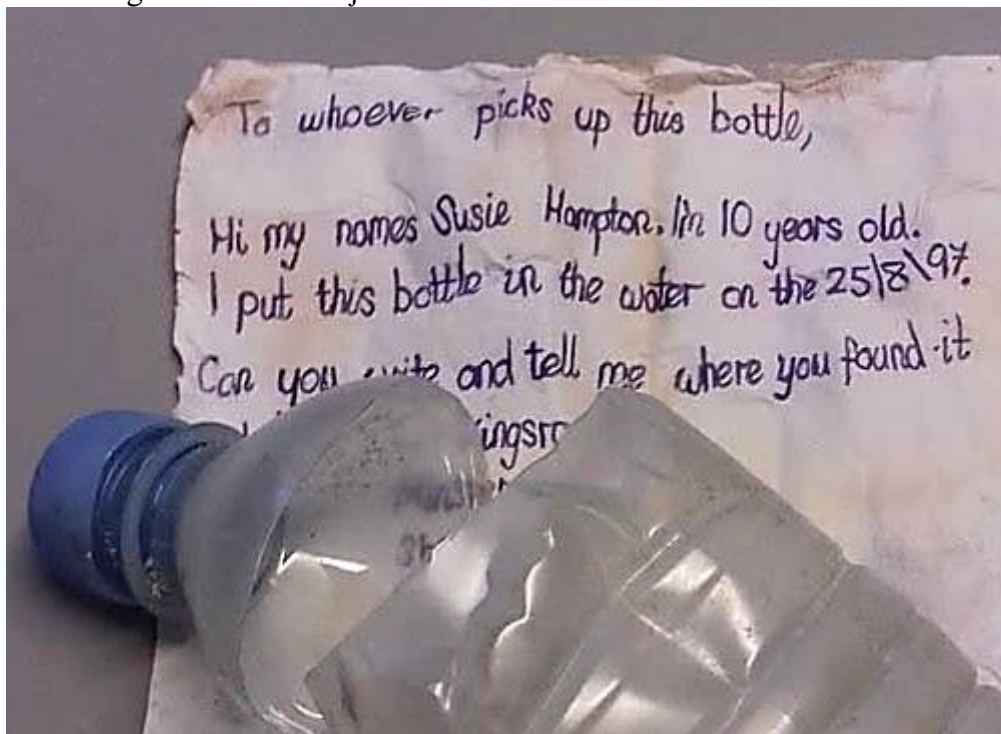 To whoever picks up this bottle,
Hi my names Susie Hampton. I'm 10 years old.
I put this bottle in the water on the 25|8\97.
Can you write and tell me where you found it